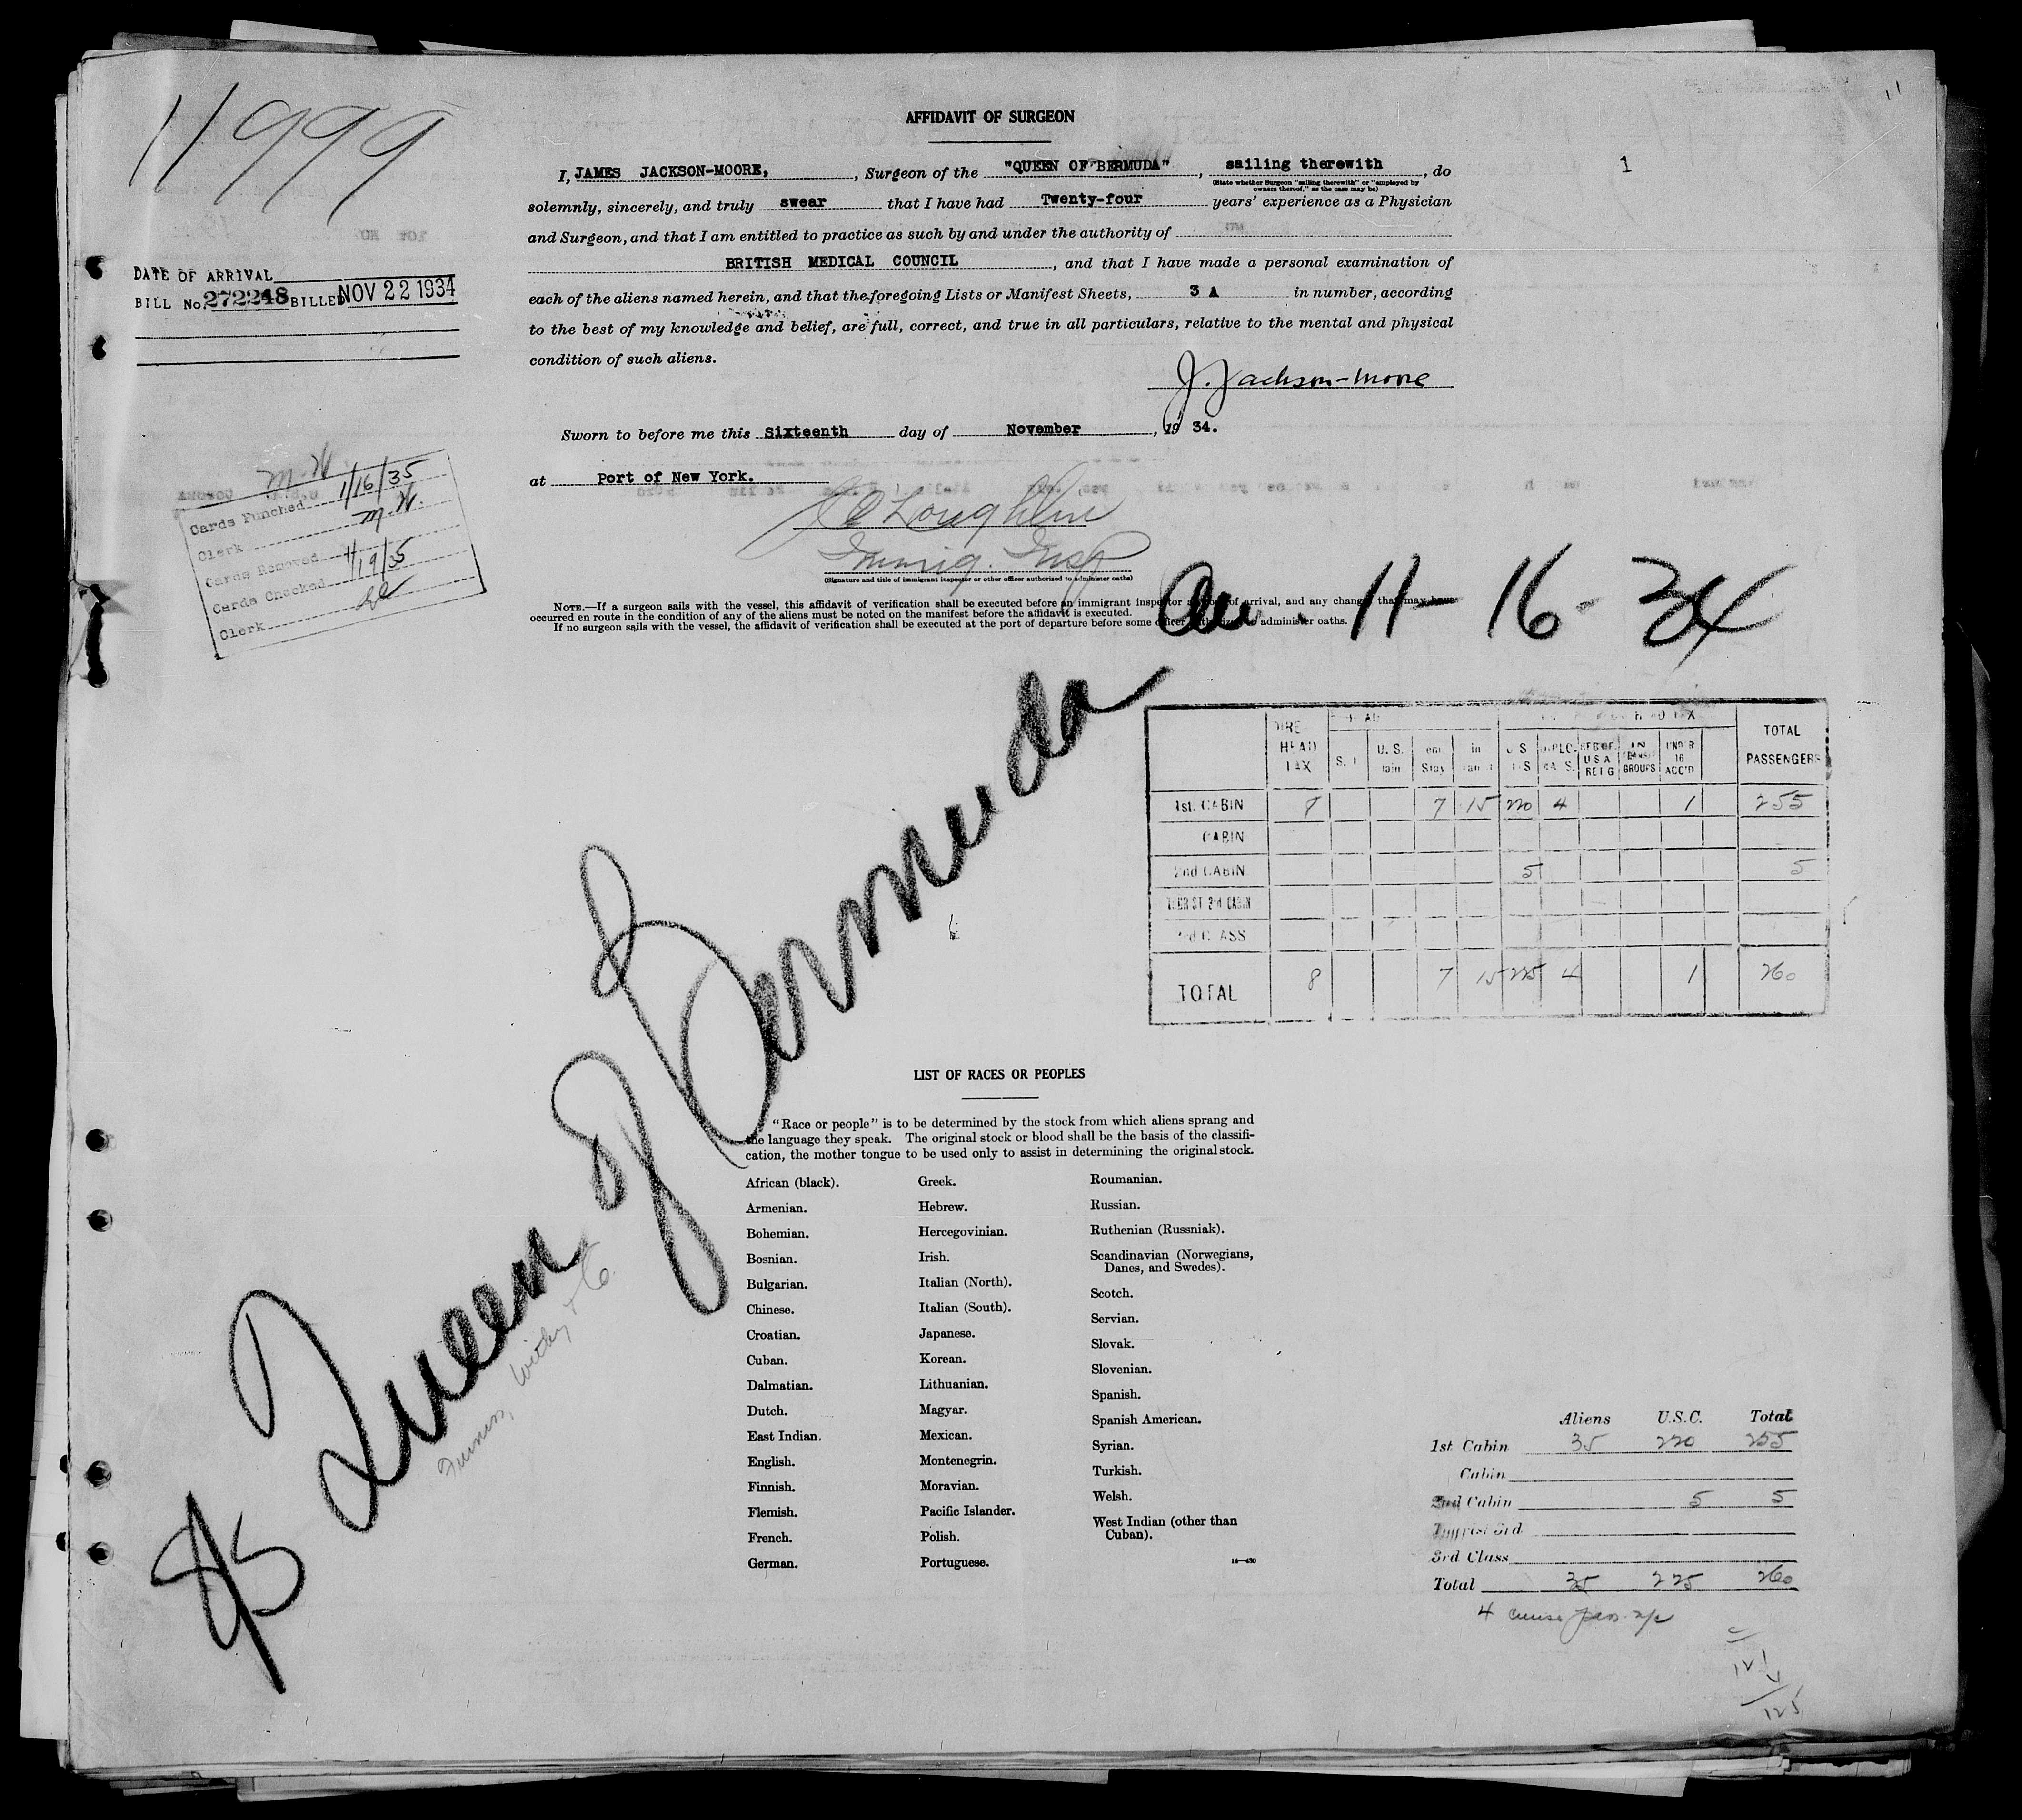 11999
AFFIDAVIT OF SURGEON
1
I, JAMES JACKSON-MOORE, , Surgeon of the "QUEEN OF BERMUDA" , sailing therewith , do
(State whether Surgeon "sailing therewith" or "employed by
owners thereof," as the case may be)
solemnly, sincerely, and truly swear that I have had Twenty-four years' experience as a Physician
and Surgeon, and that I am entitled to practice as such by and under the authority of
BRITISH MEDICAL COUNCIL , and that I have made a personal examination of
each of the aliens named herein, and that the foregoing Lists or Manifest Sheets, 3 A in number, according
to the best of my knowledge and belief, are full, correct, and true in all particulars, relative to the mental and physical
condition of such aliens.
J. Jackson-Moore
DATE OF ARRIVAL
BILL No. 272248 BILLED NOV 22 1934
Sworn to before me this Sixteenth day of November , 19 34.
at Port of New York.
Immig. Insp
(Signature and title of immigrant inspector or other officer authorized to administer oaths)
M.H.
Cards Punched 1/16/35
Clerk M.H.
Cards Removed
Cards Checked 1/19/35
Clerk
NOTE.—If a surgeon sails with the vessel, this affidavit of verification shall be executed before an immigrant inspector of arrival, and any change that may
occurred en route in the condition of any of the aliens must be noted on the manifest before the affidavit is executed.
If no surgeon sails with the vessel, the affidavit of verification shall be executed at the port of departure before some officer administer oaths.
11-16-34
S/S Queen of Bermuda
Furness, Withy & Co.
HEAD TAX
U. S.
Stay
IN GROUPS
UNDER 16 ACC'D
TOTAL PASSENGERS
1st. CABIN 8 7 15 220 4 1 255
CABIN
2nd CABIN 5 5
TOTAL 8 7 15 225 4 1 260
LIST OF RACES OR PEOPLES
"Race or people" is to be determined by the stock from which aliens sprang and
the language they speak. The original stock or blood shall be the basis of the classifi-
cation, the mother tongue to be used only to assist in determining the original stock.
African (black).
Armenian.
Bohemian.
Bosnian.
Bulgarian.
Chinese.
Croatian.
Cuban.
Dalmatian.
Dutch.
East Indian.
English.
Finnish.
Flemish.
French.
German.
Greek.
Hebrew.
Hercegovinian.
Irish.
Italian (North).
Italian (South).
Japanese.
Korean.
Lithuanian.
Magyar.
Mexican.
Montenegrin.
Moravian.
Pacific Islander.
Polish.
Portuguese.
Roumanian.
Russian.
Ruthenian (Russniak).
Scandinavian (Norwegians,
Danes, and Swedes).
Scotch.
Servian.
Slovak.
Slovenian.
Spanish.
Spanish American.
Syrian.
Turkish.
Welsh.
West Indian (other than
Cuban).
14—430
Aliens U.S.C. Total
1st Cabin 35 220 255
Cabin
2nd Cabin 5 5
Tourist 3rd
3rd Class
Total 35 225 260